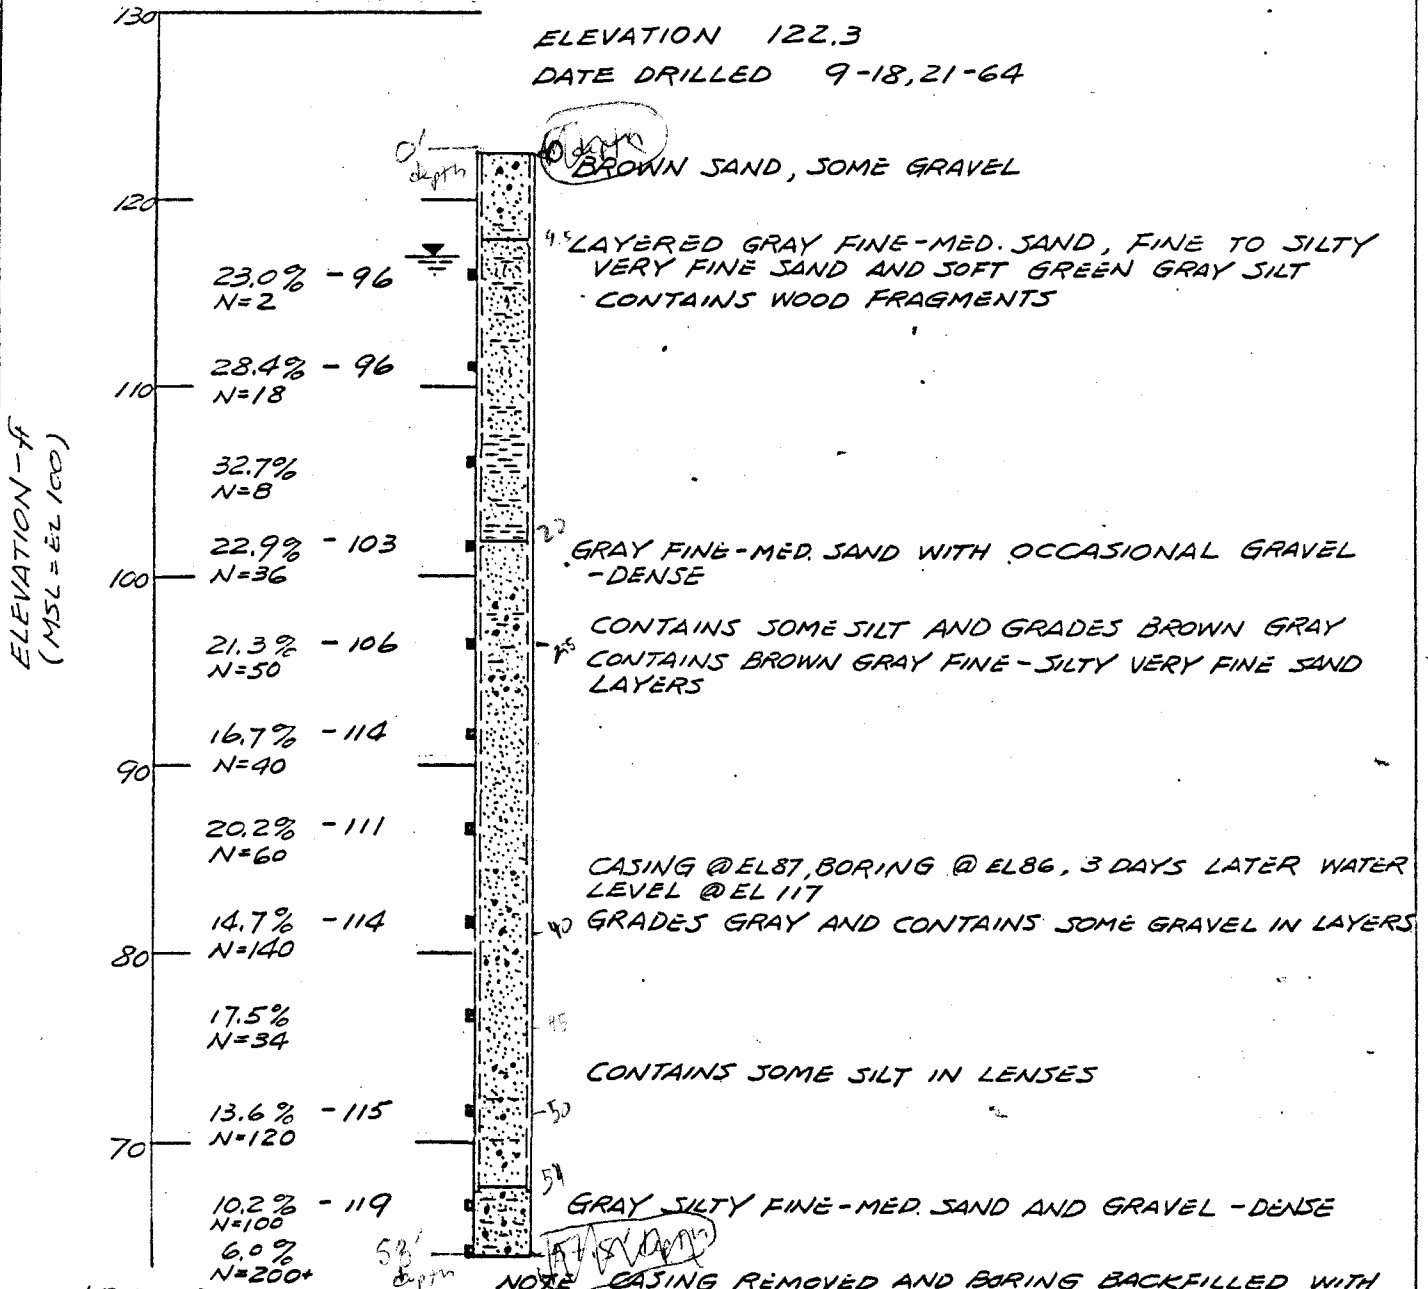 130
ELEVATION 122.3
DATE DRILLED 9-18,21-64
0'
depth
BROWN SAND, SOME GRAVEL
120
4.5
LAYERED GRAY FINE-MED. SAND, FINE TO SILTY
VERY FINE SAND AND SOFT GREEN GRAY SILT
CONTAINS WOOD FRAGMENTS
23.0% - 96
N=2
28.4% - 96
N=18
110
ELEVATION-ft
(MSL = EL 100)
32.7%
N=8
22.9% - 103
N=36
GRAY FINE-MED. SAND WITH OCCASIONAL GRAVEL
-DENSE
100
CONTAINS SOME SILT AND GRADES BROWN GRAY
21.3% - 106
N=50
CONTAINS BROWN GRAY FINE-SILTY VERY FINE SAND
LAYERS
16.7% - 114
N=40
90
20.2% - 111
N=60
CASING @EL87, BORING @ EL86, 3 DAYS LATER WATER
LEVEL @EL 117
14.7% - 114
N=140
40
GRADES GRAY AND CONTAINS SOME GRAVEL IN LAYERS
80
17.5%
N=34
45
CONTAINS SOME SILT IN LENSES
13.6% - 115
N=120
50
70
54
10.2% - 119
N=100
GRAY SILTY FINE-MED. SAND AND GRAVEL -DENSE
6.0%
N=200+
58'
depth
NOTE CASING REMOVED AND BORING BACKFILLED WITH